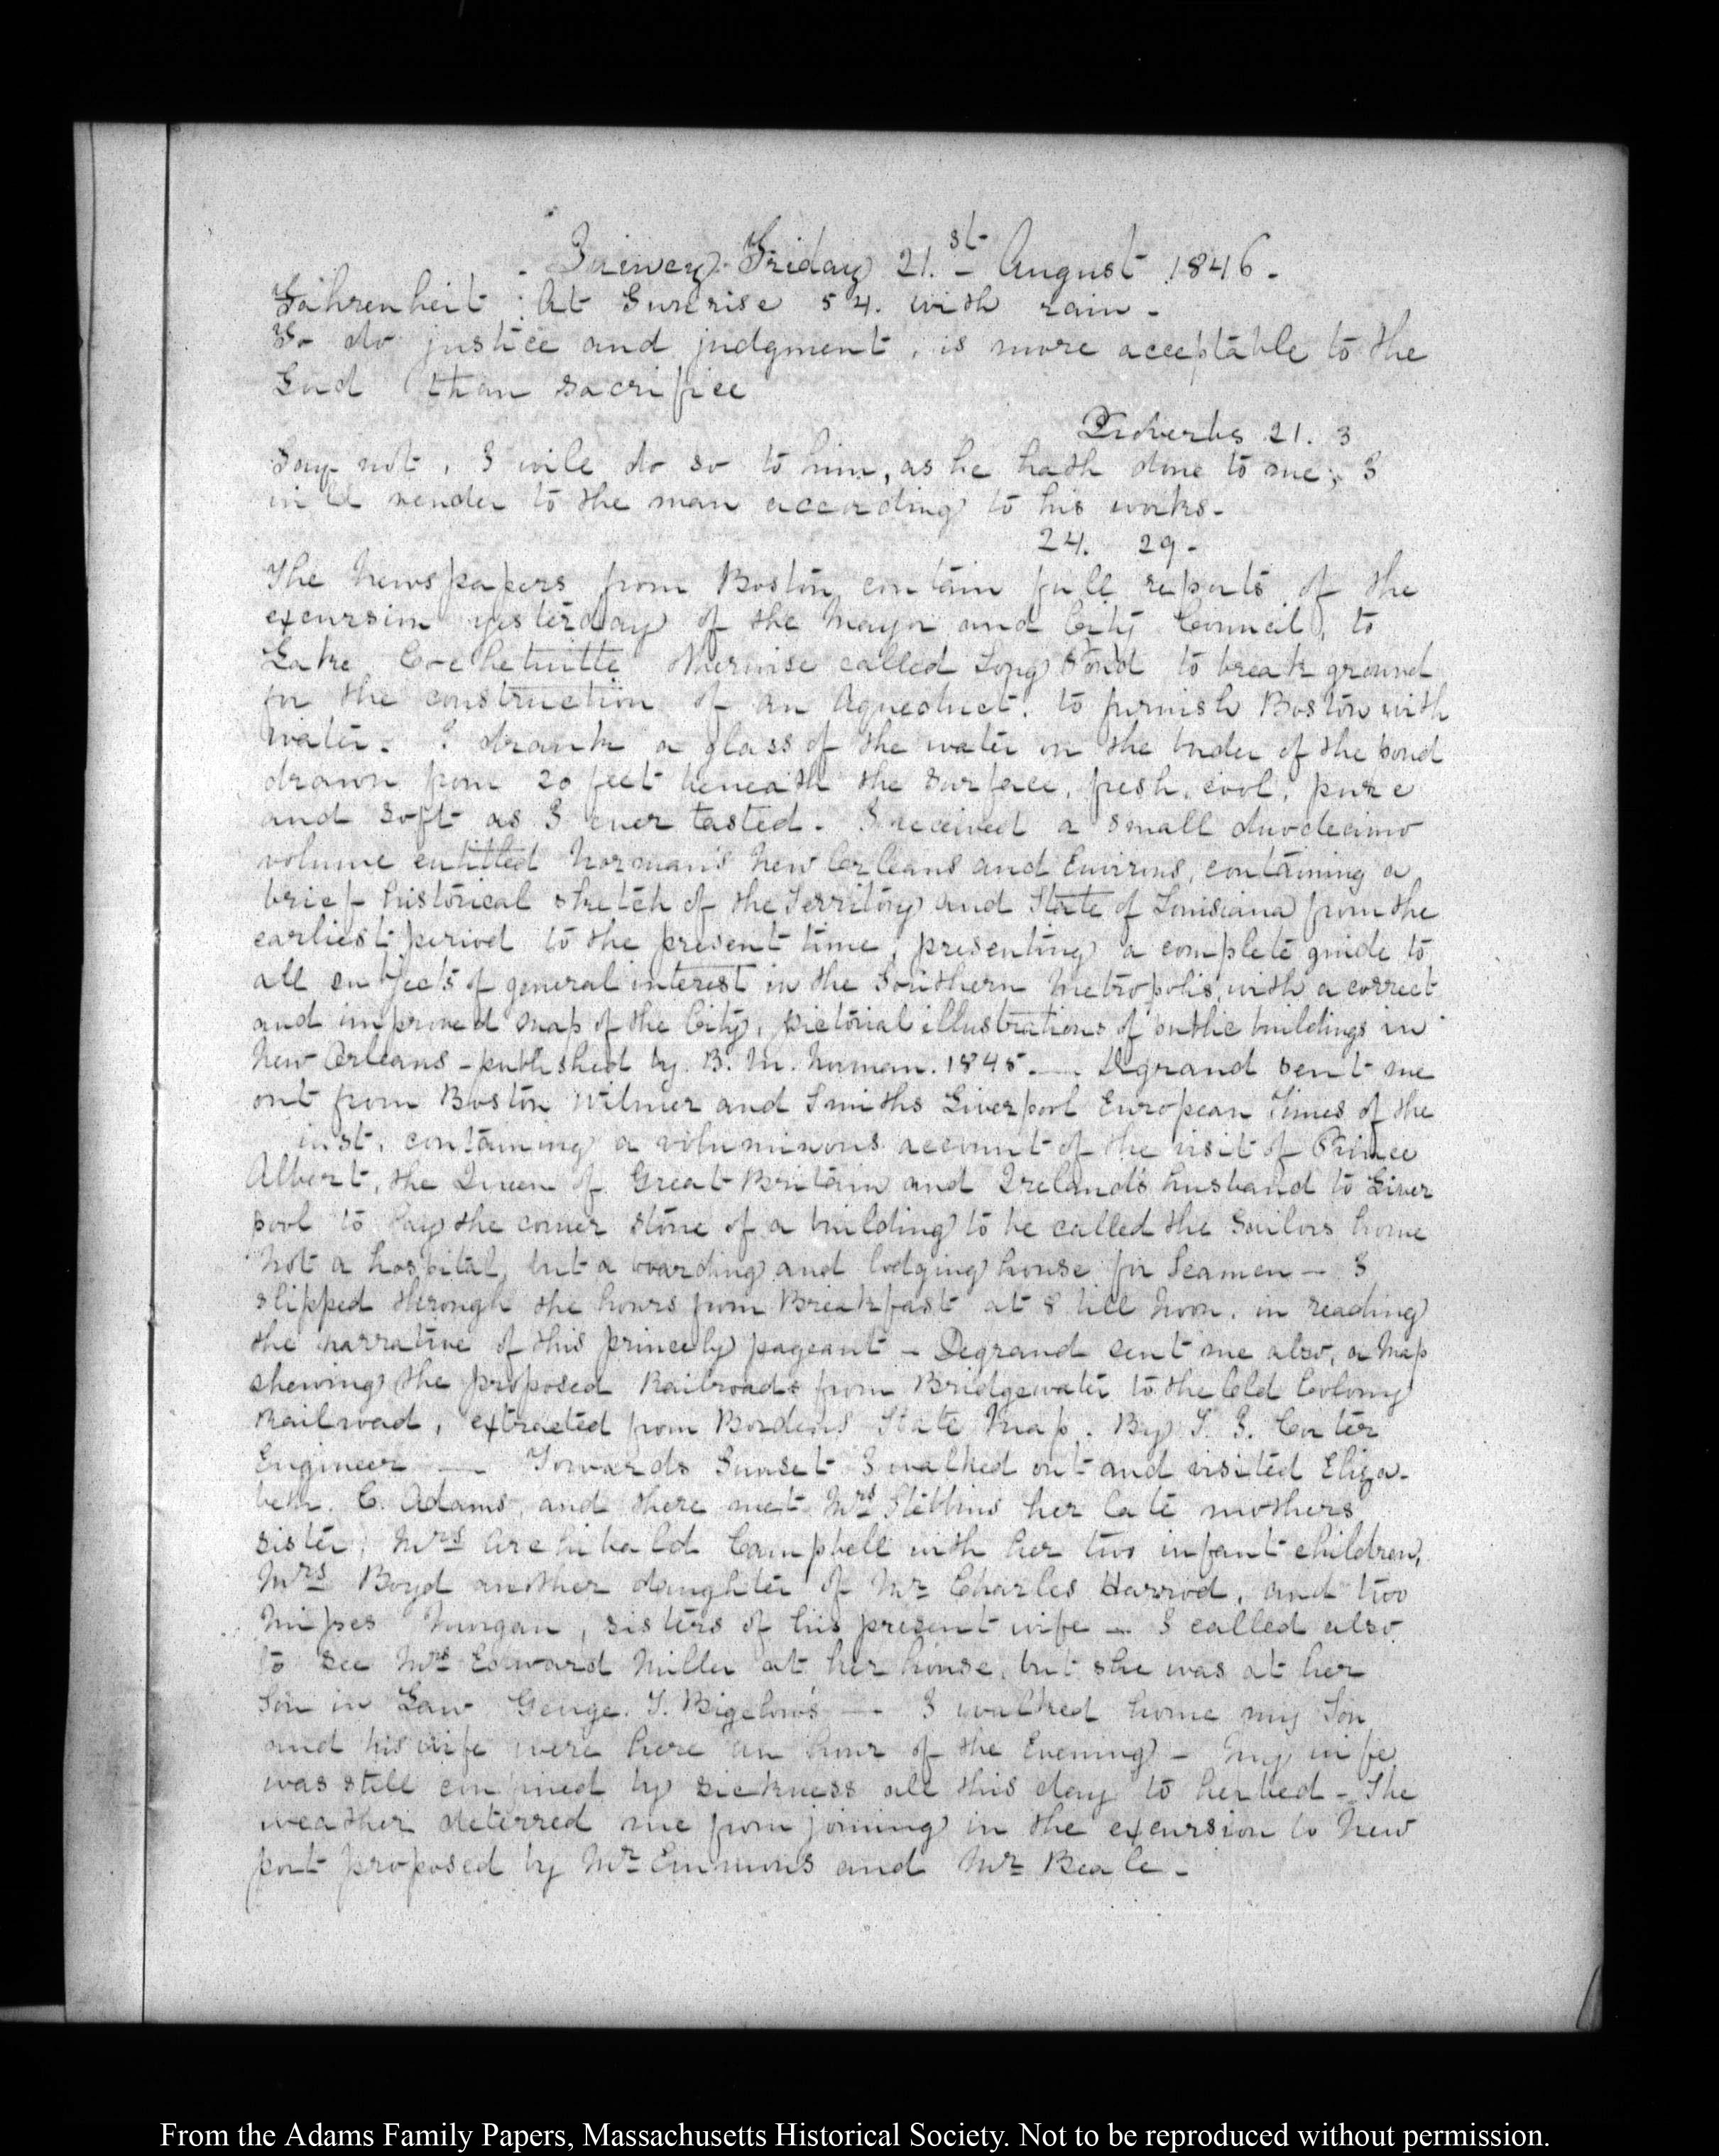 Quincy. Friday 21.st August 1846.
Fahrenheit. At Sunrise 54. with rain.
To do justice and judgment, is more acceptable to the
Lord than sacrifice
Proverbs 21. 3
Say not, I will do so to him, as he hath done to me; I
will render to the man according to his works.
24. 29.
The Newspapers from Boston contain full reports of the
excursion yesterday of the Mayor and City Council, to
Lake Cochetuitte otherwise called Long Pond to break ground
for the construction of an Aqueduct, to furnish Boston with
water. I drank a glass of the water on the border of the pond
drawn from 20 feet beneath the surface, fresh, cool, pure
and soft as I ever tasted. I received a small duodecimo
volume entitled Norman's New Orleans and Environs, containing a
brief historical sketch of the Territory and State of Louisiana from the
earliest period to the present time, presenting a complete guide to
all subjects of general interest in the Southern Metropolis, with a correct
and improved map of the City, pictorial illustrations of public buildings in
New Orleans - published by B. M. Norman. 1845. — Degrand sent me
out from Boston Wilmer and Smiths Liverpool European Times of the
inst. containing a voluminous account of the visit of Prince
Albert, the Queen of Great Britain and Ireland's husband to Liver
pool to lay the corner stone of a building to be called the Sailors home
not a hospital, but a boarding and lodging house for Seamen — I
slipped through the hours from Breakfast at 8 till Noon, in reading
the narrative of this princely pageant - Degrand sent me also, a Map
shewing the proposed Railroads from Bridgewater to the Old Colony
Railroad, extracted from Bordens State Map. By S. G. Carter
Engineer — Towards Sunset I walked out and visited Eliza-
beth. C. Adams, and there met Mrs Stebbins her late mothers
sister, Mrs Archibald Campbell with her two infant children,
Mrs Boyd another daughter of Mr Charles Harrod, and two
Misses Morgan, sisters of his present wife — I called also
to see Mrs Edward Miller at her house, but she was at her
Son in Law George. T. Bigelow's — I walked home my Son
and his wife were here an hour of the Evening - My wife
was still confined by sickness all this day to her bed - The
weather deterred me from joining in the excursion to New
port proposed by Mr Emmons and Mr Beale.
From the Adams Family Papers, Massachusetts Historical Society. Not to be reproduced without permission.